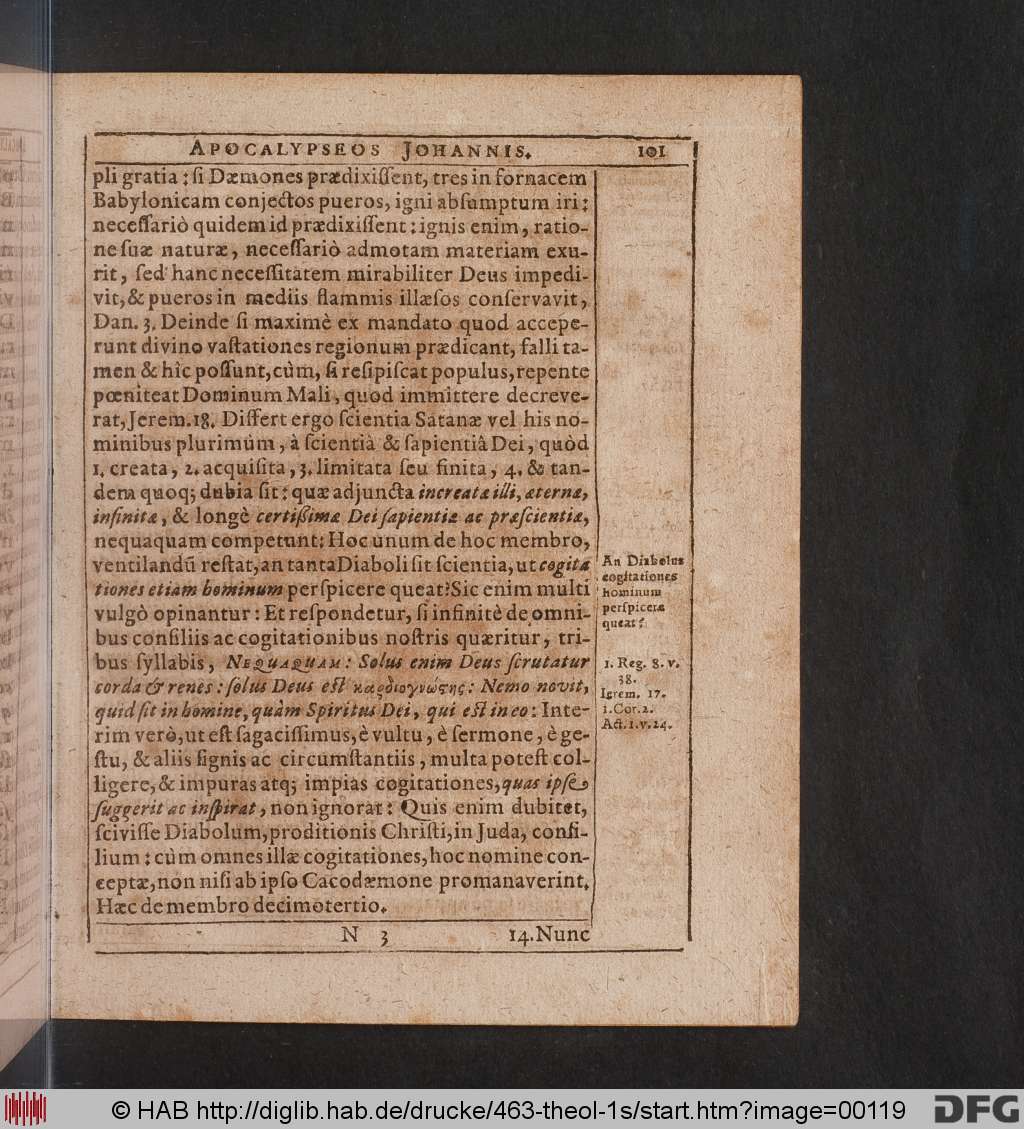 APOCALYPSEOS JOHANNIS. 101
pli gratia : ſi Dæmones prædixiſſent, tres in fornacem
Babylonicam conjectos pueros, igni abſumptum iri :
neceſſariò quidem id prædixiſſent : ignis enim, ratio-
ne ſuæ naturæ, neceſſariò admotam materiam exu-
rit, ſed hanc neceſſitatem mirabiliter Deus impedi-
vit, & pueros in mediis flammis illæſos conſervavit,
Dan. 3. Deinde ſi maximè ex mandato quod accepe-
runt divino vaſtationes regionum prædicant, falli ta-
men & hîc poſſunt, cùm, ſi reſipiſcat populus, repente
pœniteat Dominum Mali, quod immittere decreve-
rat, Jerem. 18. Differt ergo ſcientia Satanæ vel his no-
minibus plurimùm, à ſcientiâ & ſapientiâ Dei, quòd
1. creata, 2. acquiſita, 3. limitata ſeu finita, 4. & tan-
dem quoq; dubia ſit : quæ adjuncta increatæ illi, æternæ,
infinitæ, & longè certißimæ Dei ſapientiæ ac præſcientiæ,
nequaquam competunt: Hoc unum de hoc membro,
ventilandū reſtat, an tanta Diaboli ſit ſcientia, ut cogita
tiones etiam hominum perſpicere queat? Sic enim multi
vulgò opinantur : Et reſpondetur, ſi infinitè de omni-
bus conſiliis ac cogitationibus noſtris quæritur, tri-
bus ſyllabis, NEQUAQUAM : Solus enim Deus ſcrutatur
corda & renes : ſolus Deus eſt καρδιογνώϛης : Nemo novit,
quid ſit in homine, quàm Spiritus Dei, qui eſt in eo : Inte-
rim verò, ut eſt ſagaciſſimus, è vultu, è ſermone, è ge-
ſtu, & aliis ſignis ac circumſtantiis, multa poteſt col-
ligere, & impuras atq; impias cogitationes, quas ipſe
ſuggerit ac inſpirat, non ignorat : Quis enim dubitet,
ſciviſſe Diabolum, proditionis Chriſti, in Juda, conſi-
lium : cùm omnes illæ cogitationes, hoc nomine con-
ceptæ, non niſi ab ipſo Cacodæmone promanaverint.
Hæc de membro decimotertio.
An Diabolus
cogitationes
hominum
perſpicere
queat?
1. Reg. 8. v.
38.
Ierem. 17.
1. Cor. 2.
Act. 1. v. 24.
N 3 14. Nunc
© HAB http://diglib.hab.de/drucke/463-theol-1s/start.htm?image=00119 DFG